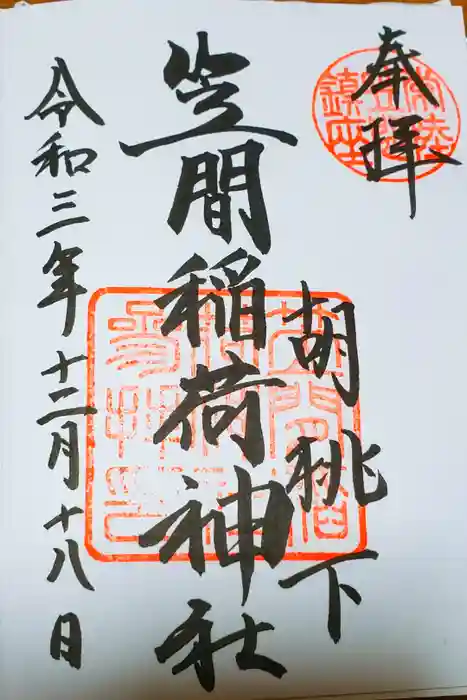 奉拝
常陸
笠間
鎮座
胡桃下
笠間稲荷神社
令和三年十二月十八日